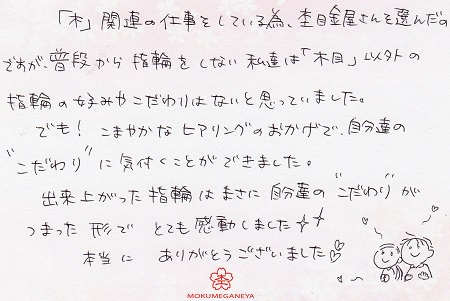 「木」関連の仕事をしている為、杢目金屋さんを選んだの
ですが、普段から指輪をしない私達は「木目」以外の
指輪の好みやこだわりはないと思っていました。
でも！こまやかなヒアリングのおかげで、自分達の
"こだわり"に気付くことができました。
出来上がった指輪はまさに自分達の"こだわり"が
つまった形でとても感動しました☆☆
本当にありがとうございました♡
杢
MOKUMEGANEYA